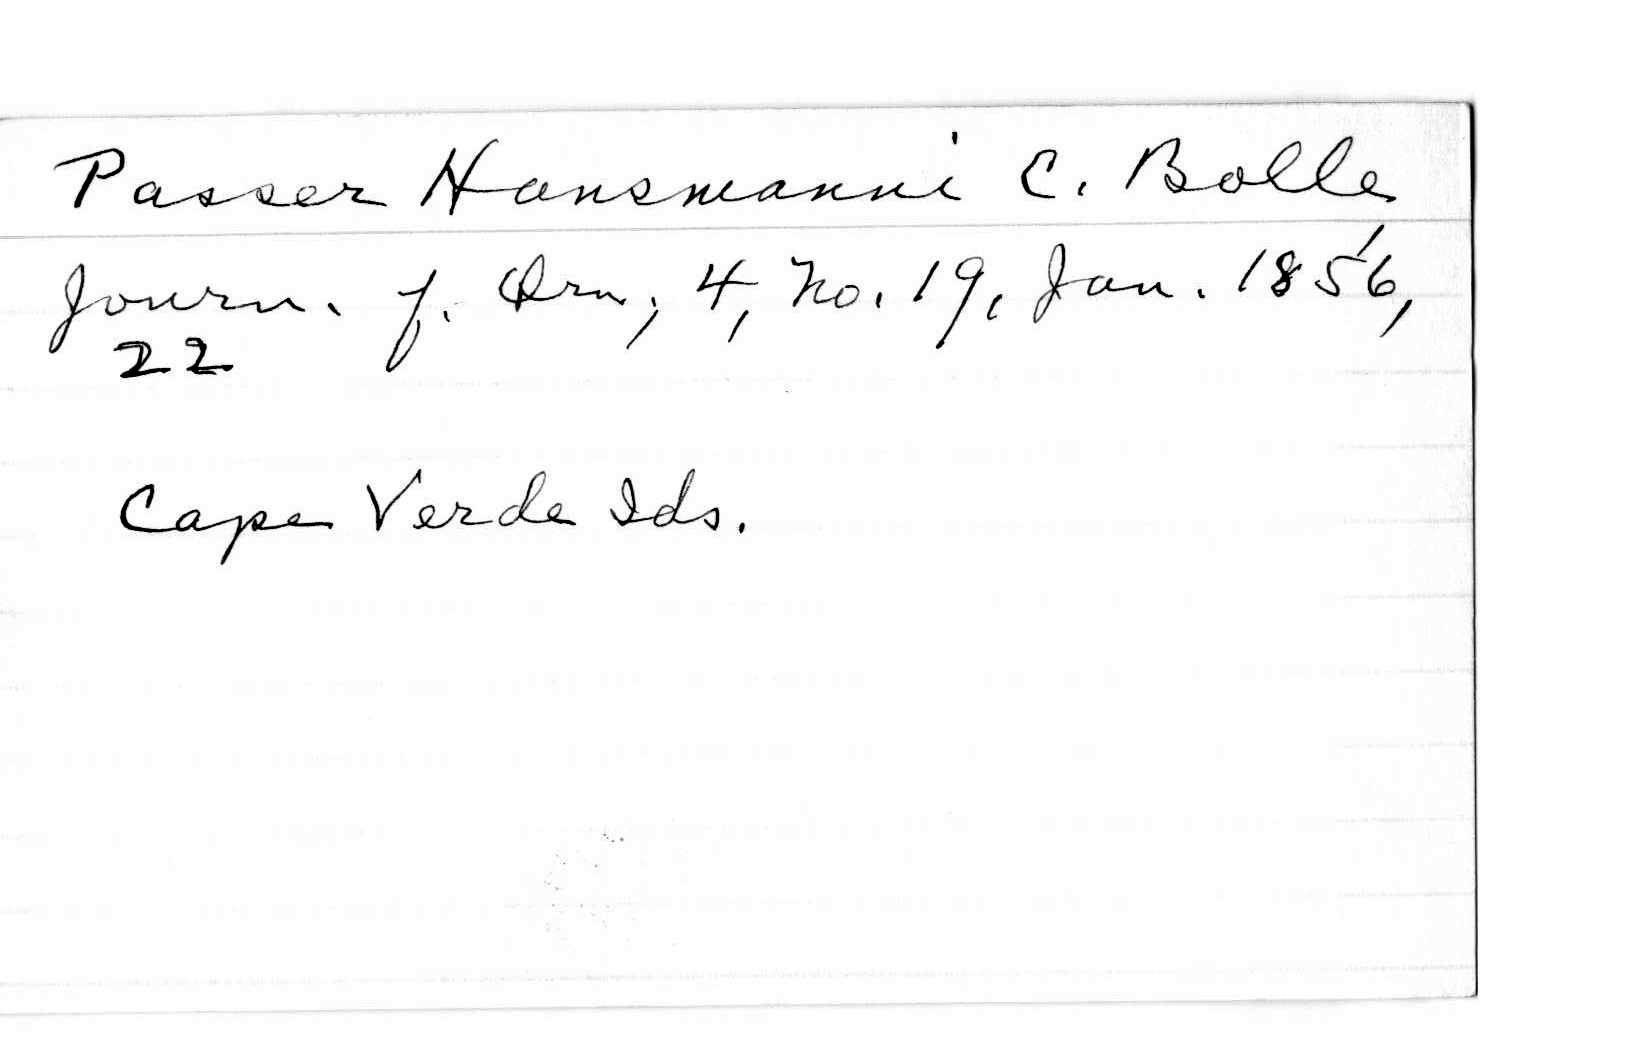 Passer Hansmanni C. Bolle
Journ. f. Orn., 4, No. 19, Jan. 1856,
22
Cape Verde Ids.